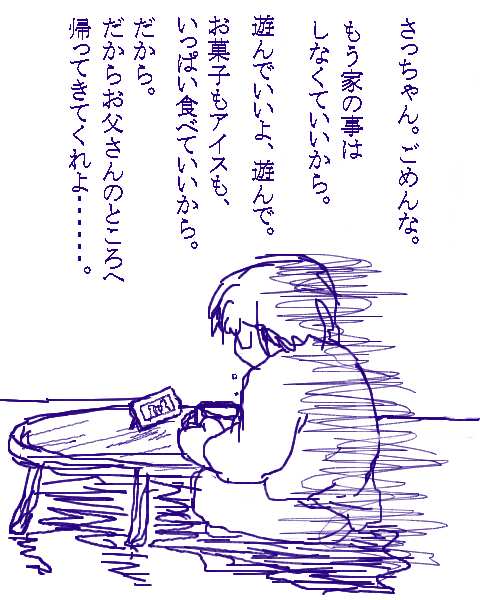 さっちゃん。ごめんな。
もう家の事は
しなくていいから。
遊んでいいよ、遊んで。
お菓子もアイスも、
いっぱい食べていいから。
だから。
だからお父さんのところへ
帰ってきてくれよ……。